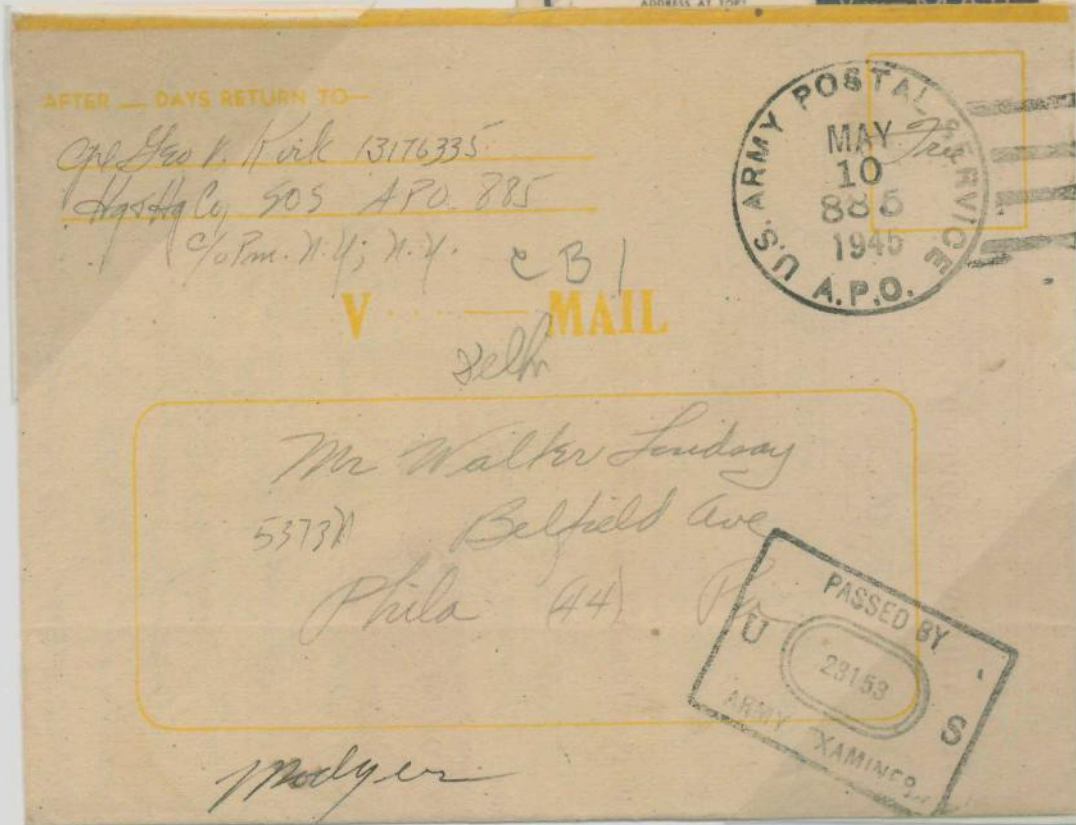 ADDRESS AT TOP!
AFTER __ DAYS RETURN TO—
Cpl Geo V. Kirk 13176335
Hq & Hq Co, SOS APO. 885
c/o Pm. N.Y; N.Y.
CBI
U.S. ARMY POSTAL SERVICE
MAY
10
885
1945
A.P.O.
Free
V ···—MAIL
Delhi
Mr Walter Lindsay
5373 Belfield Ave
Phila (44) Pa
PASSED BY
U 23153 S
ARMY EXAMINER